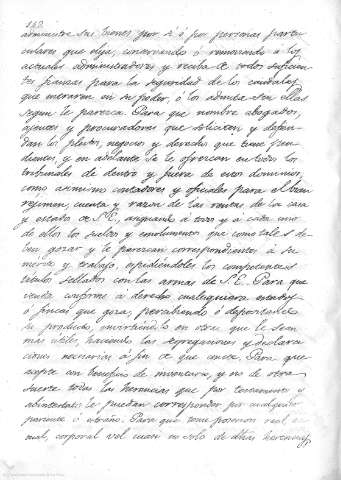 142
administre sus bienes por sí ó por personas parti-
culares que elija, conservando ó removiendo á los
actuales administradores y reciba de todos suficien-
tes fianzas para la seguridad de los caudales
que entraren en su poder, ó los admita sin ellas
segun le parezca. Para que nombre abogados,
agentes y procuradores que soliciten y defien-
dan los pleitos, negocios y derechos que tiene pen-
dientes, y en adelante se le ofrezcan en todos los
tribunales de dentro y fuera de estos dominios,
como asimismo contadores y oficiales para el buen
regimen, cuenta y razon de las rentas de la casa
y estado de S.E., asignando á todos y á cada uno
de ellos los sueldos y emolumentos que como tales de-
ban gozar y le parezcan correspondientes á su
mérito y trabajo, espidiéndoles los competentes
títulos sellados con las armas de S.E. Para que
venda conforme á derecho cualesquiera
ó fincas que goza, percibiendo ó depositando
su producto, invirtiéndolo en otras que le sean
mas útiles, haciendo las segregaciones y declara-
ciones necesarias á fin de que conste. Para que
acepte con beneficio de inventario, y no de otra
suerte todas las herencias que por testamento y
abintestato le puedan corresponder por cualquier
pariente ó estraño. Para que tome posesion real, ac-
tual, corporal vel cuasi no solo de dichas herencias